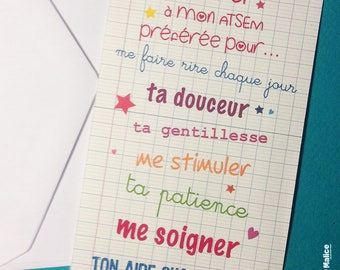 à mon ATSEM
préférée pour...
me faire rire chaque jour
ta douceur
ta gentillesse
me stimuler
ta patience
me soigner
TON AIDE
Malice